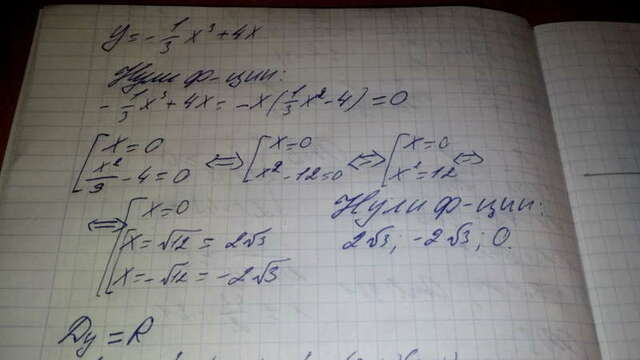 y = -1/3 x³ + 4x
Нули ф-ции:
-1/3 x³ + 4x = -x(1/3 x² - 4) = 0
[x = 0 ; x²/3 - 4 = 0 ⇔ [x = 0 ; x² - 12 = 0 ⇔ [x = 0 ; x² = 12 ⇔
⇔ [x = 0 ; x = √12 = 2√3 ; x = -√12 = -2√3
Нули ф-ции:
2√3; -2√3; 0.
Dy = R